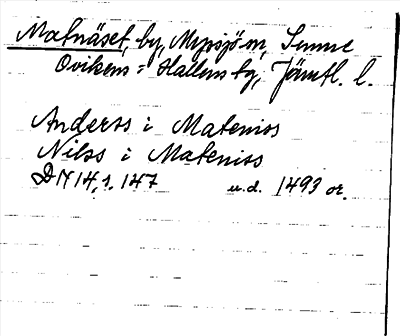 Matnäset, by, Myssjö sn, Sunne
Ovikens o Hallens tg, Jämtl. l.
Anderss i Mateniss
Nilss i Mateniss
DN 14,1.147 u.d. 1493 or.